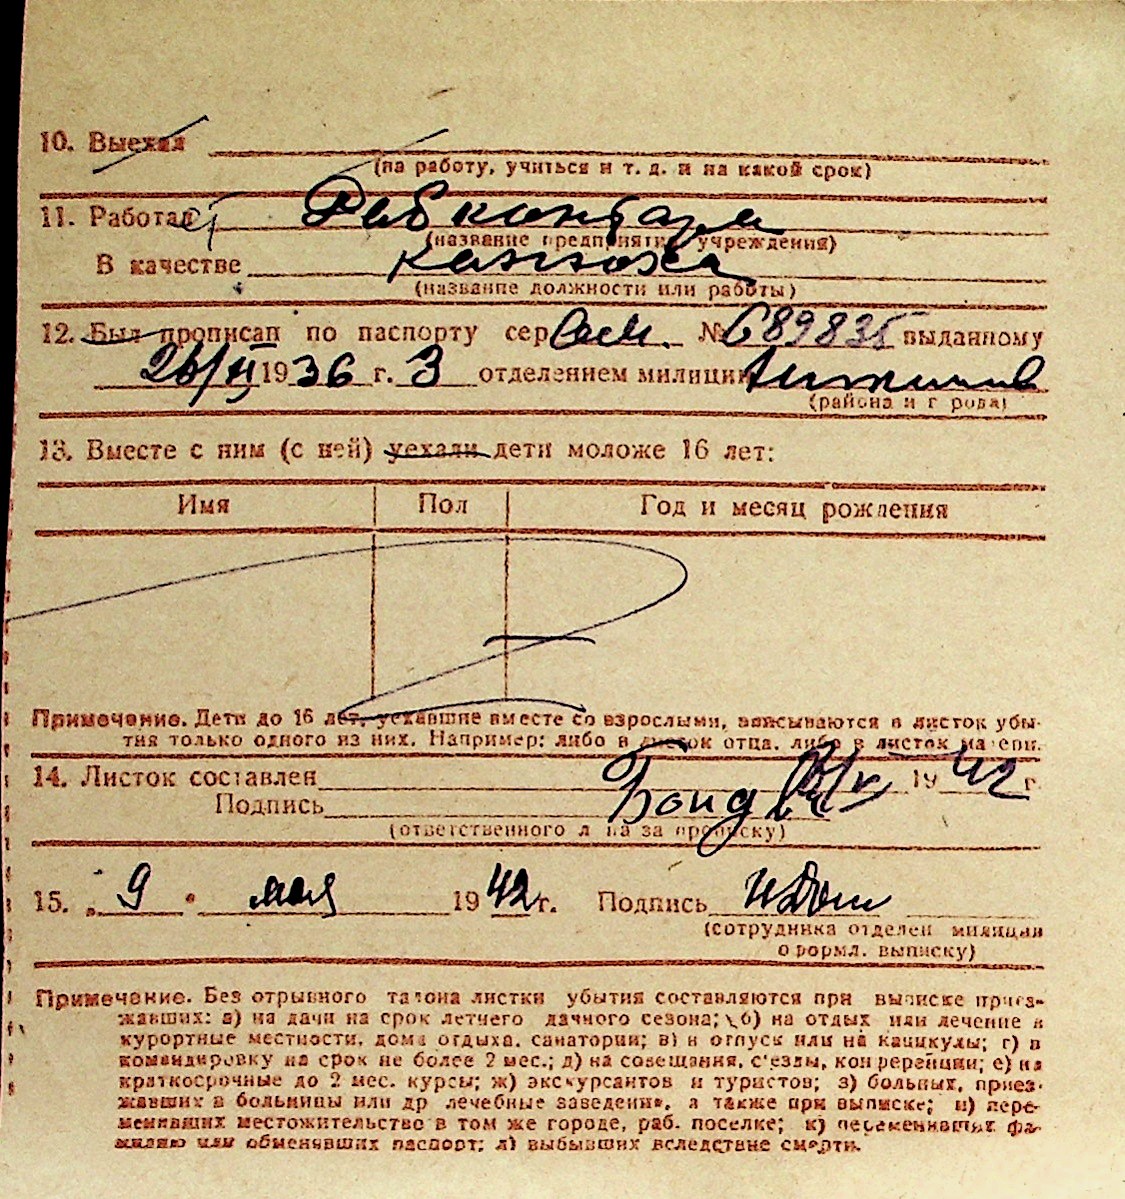 10. Выехал
(на работу, учиться и т. д. и на какой срок)
11. Работал
(название предприятия, учреждения)
В качестве
(название должности или работы)
12. Был прописан по паспорту сер № 689835 выданному
26/XI 1936 г. 3 отделением милиции
(района и города)
13. Вместе с ним (с ней) уехали дети моложе 16 лет:
Имя Пол Год и месяц рождения
Примечание. Дети до 16 лет, уехавшие вместе со взрослыми, вписываются в листок убы-
тия только одного из них. Например: либо в листок отца, либо в листок матери.
14. Листок составлен 1942 г.
Подпись
(ответственного лица за прописку)
15. „9" мая 1942 г. Подпись
(сотрудника отделен милиции
оформл. выписку)
Примечание. Без отрывного талона листки убытия составляются при выписке приез-
жавших: а) на дачи на срок летнего дачного сезона; б) на отдых или лечение в
курортные местности, дома отдыха, санатории; в) в отпуск или на каникулы; г) в
командировку на срок не более 2 мес.; д) на совещания, с'езды, конференции; е) на
краткосрочные до 2 мес. курсы; ж) экскурсантов и туристов; з) больных, приез-
жавших в больницы или др лечебные заведения, а также при выписке; и) пере-
менивших местожительство в том же городе, раб. поселке; к) переменивших фа-
милию или обменявших паспорт; л) выбывших вследствие смерти.